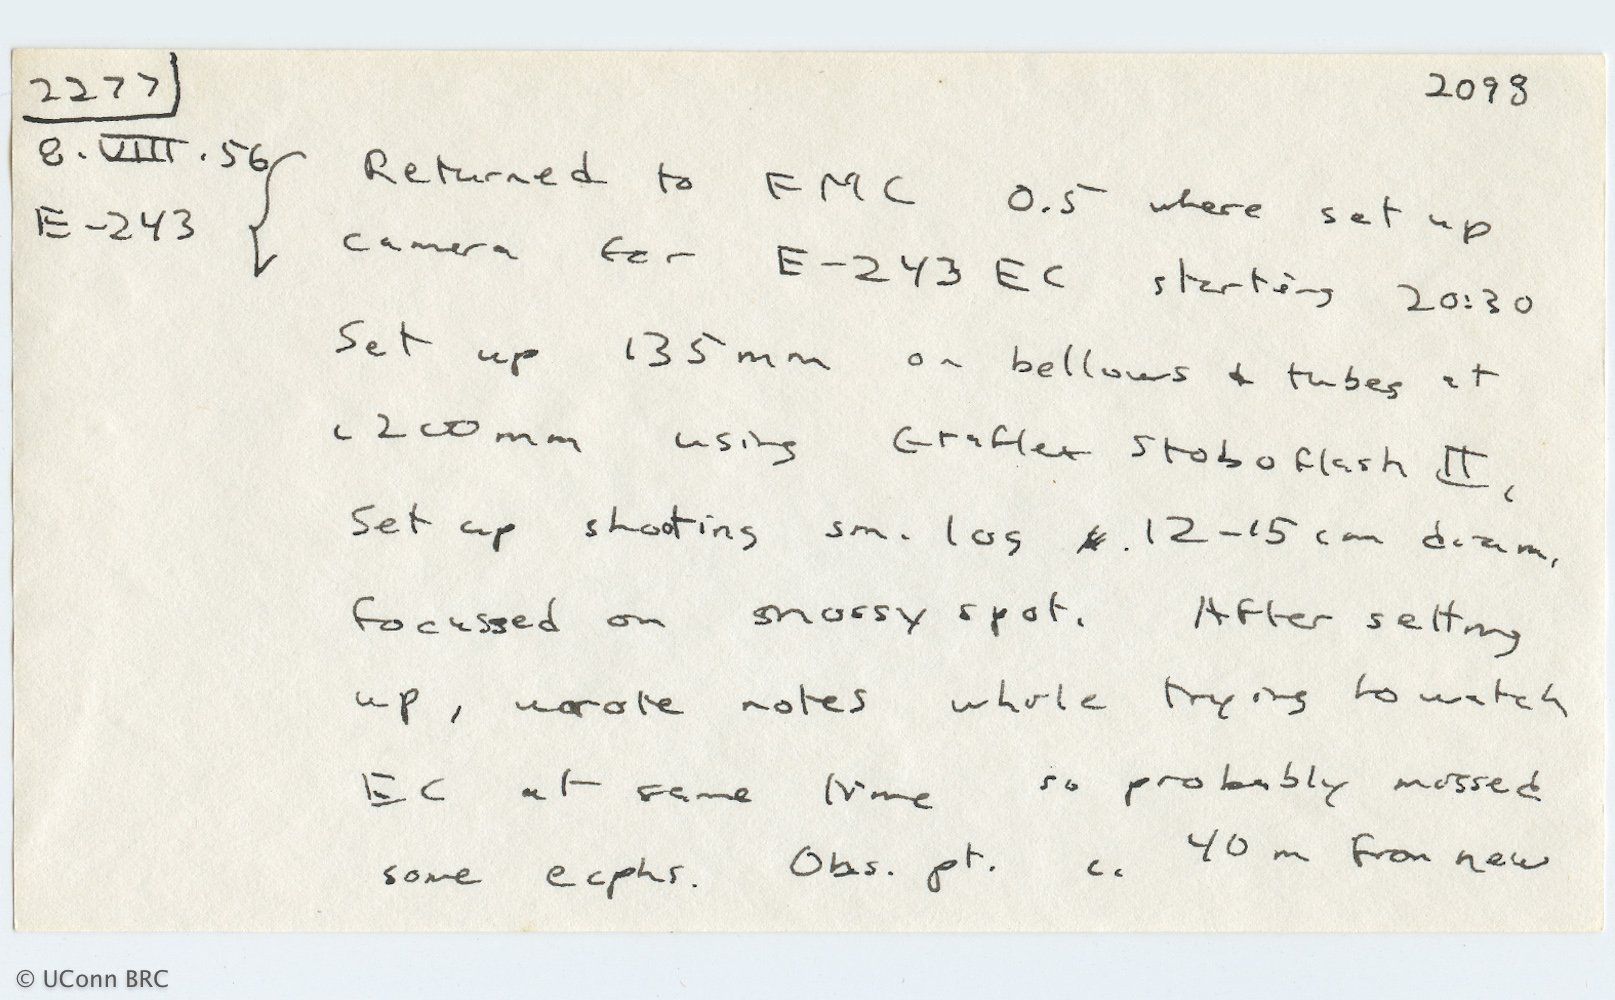 2277 2098
8.VIII.56 Returned to FMC 0.5 where set up
E-243 camera for E-243 EC starting 20:30
Set up 135mm on bellows & tubes at
c200mm using Graflex Stoboflash II,
Set up shooting sm. log . 12-15 cm diam,
focussed on mossy spot. After setting
up, wrote notes while trying to watch
EC at same time so probably missed
some ecphs. Obs. pt. c. 40 m from new
© UConn BRC